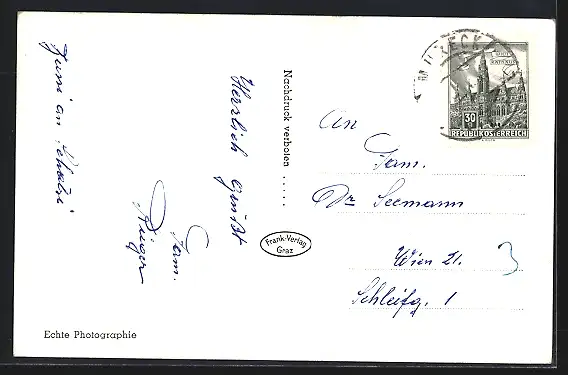 Herzlich Grüßt
Fam.
Rüger
Nachdruck verboten .....
Frank-Verlag
Graz
30
REPUBLIK ÖSTERREICH
An
Fam.
Dr Seemann
Wien 21.
Schleifg. 1
3
Echte Photographie